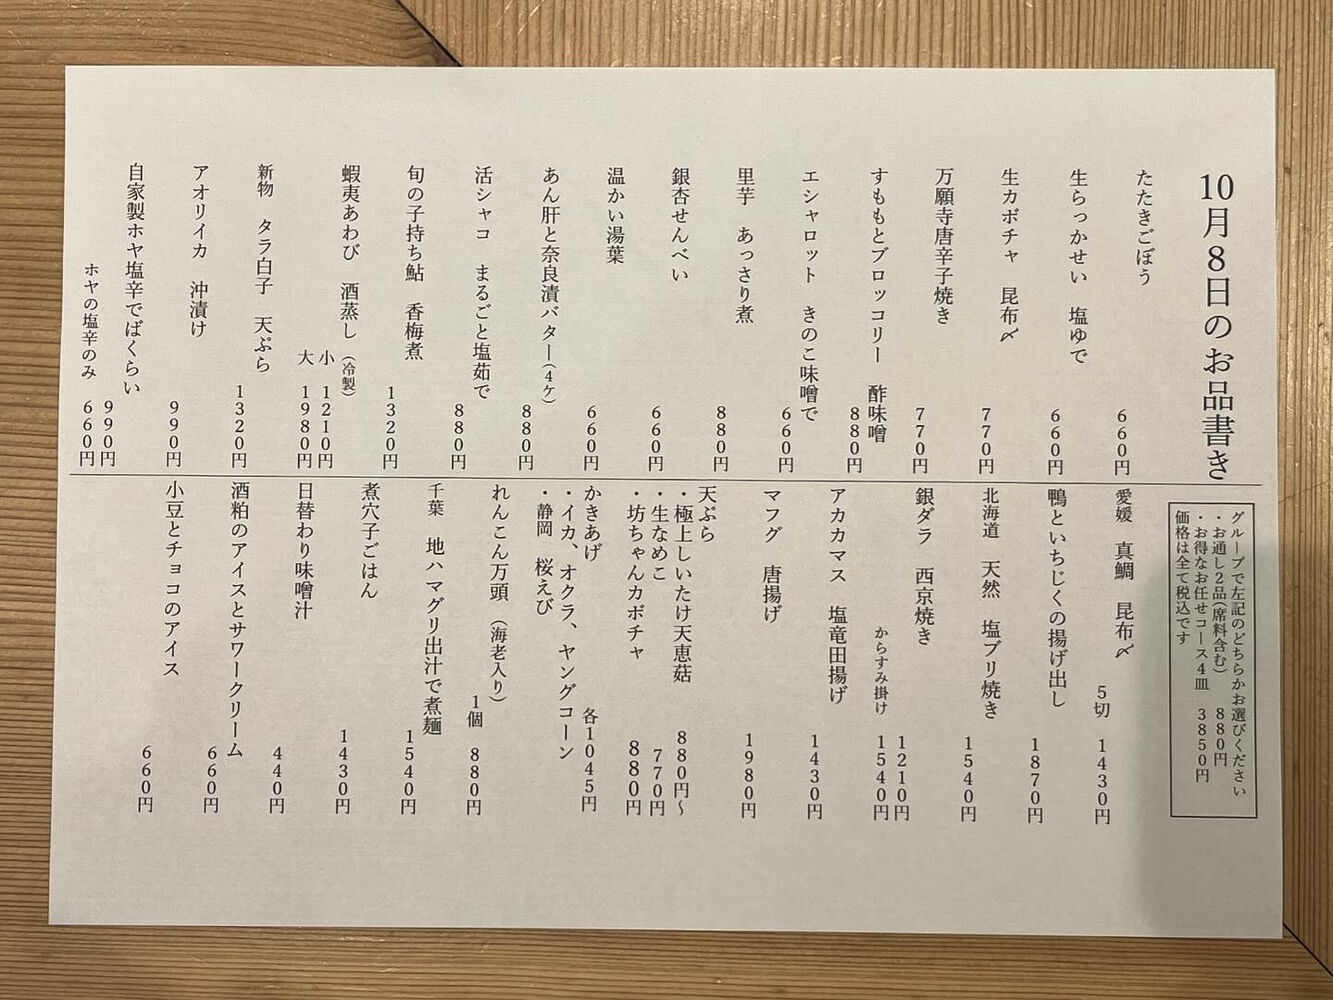 10月8日のお品書き
グループで左記のどちらかお選びください
・お通し2品(席料含む) 880円
・お得なお任せコース4皿 3850円
価格は全て税込です
たたきごぼう 660円
生らっかせい 塩ゆで 660円
生カボチャ 昆布〆 770円
万願寺唐辛子焼き 770円
すももとブロッコリー 酢味噌 880円
エシャロット きのこ味噌で 660円
里芋 あっさり煮 880円
銀杏せんべい 660円
温かい湯葉 660円
あん肝と奈良漬バター(4ケ) 880円
活シャコ まるごと塩茹で 880円
旬の子持ち鮎 香梅煮 1320円
蝦夷あわび 酒蒸し(冷製) 小 1210円
大 1980円
新物 タラ白子 天ぷら 1320円
アオリイカ 沖漬け 990円
自家製ホヤ塩辛でばくらい 990円
ホヤの塩辛のみ 660円
愛媛 真鯛 昆布〆 5切 1430円
鴨といちじくの揚げ出し 1870円
北海道 天然 塩ブリ焼き 1540円
銀ダラ 西京焼き 1210円
からすみ掛け 1540円
アカカマス 塩竜田揚げ 1430円
マフグ 唐揚げ 1980円
天ぷら
・極上しいたけ天恵菇 880円～
・生なめこ 770円
・坊ちゃんカボチャ 880円
かきあげ 各1045円
・イカ、オクラ、ヤングコーン
・静岡 桜えび
れんこん万頭(海老入り) 1個 880円
千葉 地ハマグリ出汁で煮麺 1540円
煮穴子ごはん 1430円
日替わり味噌汁 440円
酒粕のアイスとサワークリーム 660円
小豆とチョコのアイス 660円